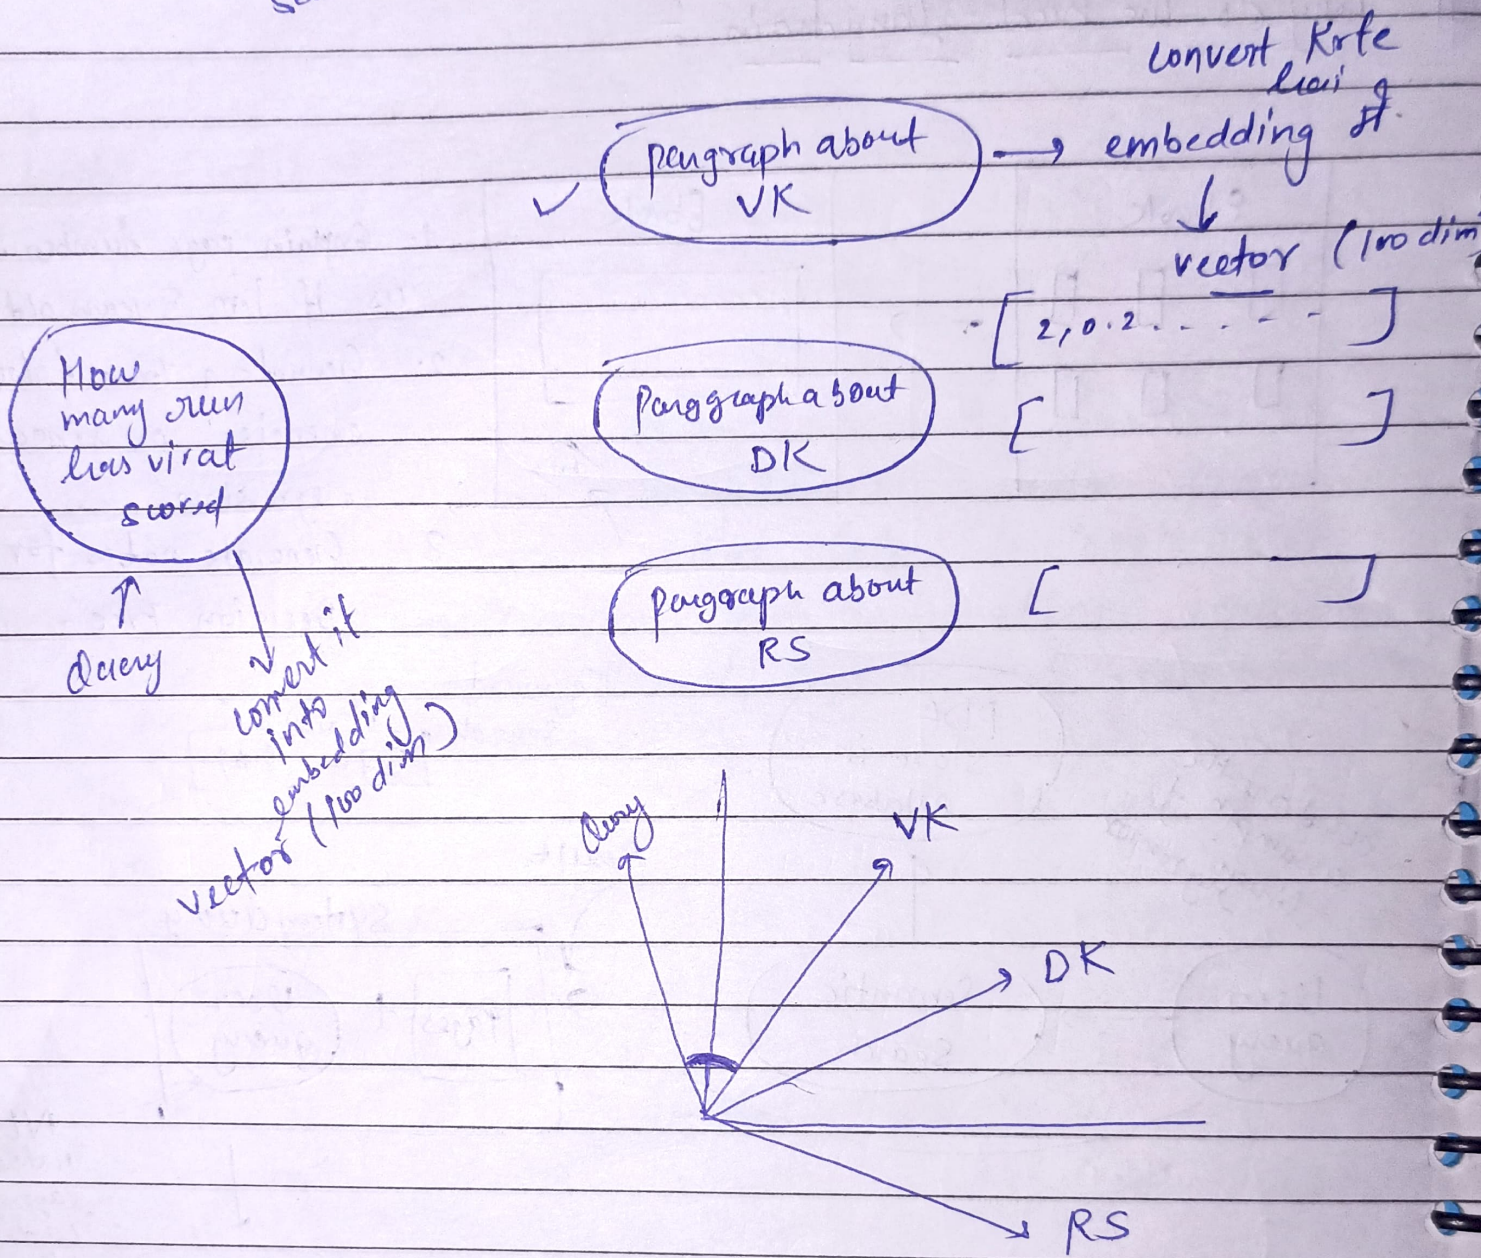 convert Krte
hai
paragraph about
VK
embedding में
vector (100 dim
[ 2, 0.2. - - - - - ]
How
many run
has virat
scored
Paragraph about
DK
[ ]
paragraph about
RS
[ ]
Query
convert it
into
embedding
vector (100 dim)
Query
VK
DK
RS